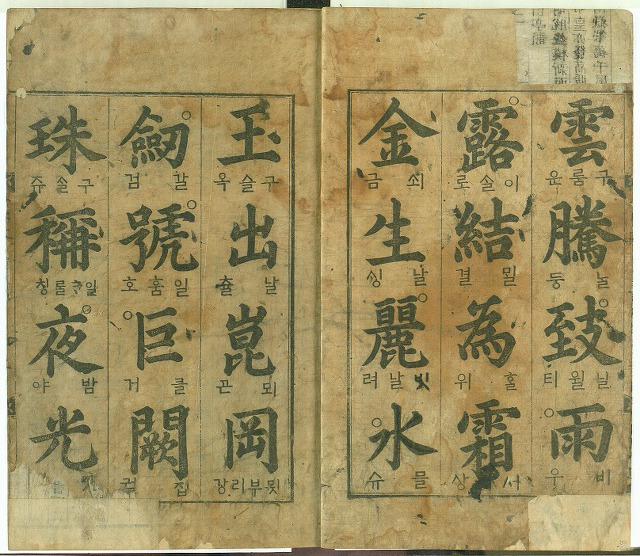 雲 구룸 운 騰 ᄂᆞᆯ 등 致 닐윌 티 雨 비 우
露 이슬 로 結 ᄆᆡᆯ 결 為 ᄒᆞᆯ 위 霜 서 상
金 쇠 금 生 날 ᄉᆡᆼ 麗 빗날 려 水 믈 슈
玉 구슬 옥 出 날 츌 崑 뫼 곤 岡 묏부리 강
劒 갈 검 號 일홈 호 巨 클 거 闕 집 궐
珠 구슬 쥬 稱 일ᄏᆞᄅᆞᆯ 칭 夜 밤 야 光